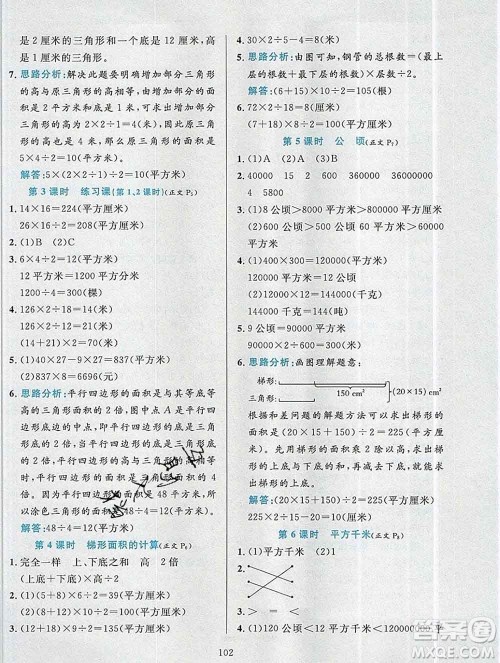 是 2 厘米的三角形和一个底是 12 厘米、高
是 2 厘米的三角形。
7. 思路分析:解决此题要明确增加部分三角形
的高与原三角形的高相等,由增加部分三角
形的面积和底可以求出增加部分三角形的
高为 2×2÷1=4(米),即原三角形的高是 4
米,那么原三角形的面积为
5×4÷2=10(平方米)。
解答:5×(2×2÷1)÷2=10(平方米)
第 3 课时 练习课(第 1、2 课时)(正文 P₅)
1. 14×16=224(平方厘米)
26×16÷2=208(平方厘米)
2. (1)B (2)C
3. 6×4÷2=12(平方米)
12 平方米=1200 平方分米
1200÷4=300(棵)
4. (1)18×6÷2=54(平方米)
(2)18÷2×(6÷2)=27(棵)
5. (1)40×27-9×27=837(平方米)
(2)837×8=6696(元)
6. 思路分析:平行四边形的面积是与其等底等
高的三角形面积的 2 倍。图中点 A 是平行四
边形底边的中点,即平行四边形的底是涂色
三角形底的 2 倍,当平行四边形与三角形的
高相等时,平行四边形的面积是涂色三角形
面积的
所以涂色三角形的面积为 48÷4=12(平方
厘米)。
解答:48÷4=12(平方厘米)
第 4 课时 梯形面积的计算(正文 P₆)
1. 完全一样 上、下底之和 高 2 倍
(上底+下底)×高÷2
2. (1)(10+20)×18÷2=270(平方厘米)
(2)(10+22)×15÷2=240(平方厘米)
3. (12+18)×9÷2=135(平方米)
4. 30×2÷5-4=8(厘米)
5. 思路分析:由图可知,钢管的总根数=(最上
层的根数+最下层的根数)×层数÷2。
解答:(5+16)×10÷2=105(根)
6. 72×2÷18=8(厘米)
(7+18)×8÷2=100(平方厘米)
第 5 课时 公 顷(正文 P₇)
1. (1)A (2)A (3)A
2. 40000 22 150000 34
4 6800 120000 4
3. (1)8 公顷>8000 平方米>800 平方米
(2)60000 平方米>5 公顷>5000 平方米
4. (1)400×300=120000(平方米)
120000 平方米=12 公顷
(2)12×12=144(吨)
144 吨=144000 千克
144000 千克=144(吨)
5. 9 公顷=90000 平方米
90000×2÷600=300(米)
6. 思路分析:画图理解题意:
梯形:
三角形:
150 cm²
(20×15)cm²
根据和差问题的解题方法可以求出梯形的
面积和三角形的面积,再用梯形的面积乘 2 除
以梯形的高求出上底与下底的和,再减去下
底的长度就是上底的长度。
解答:(20×15+150)÷2=225(平方厘米)
225×2÷15-20=10(厘米)
第 6 课时 平方千米(正文 P₈)
1. (1)平方千米 (2)1
2.
3. > = < =
4. (1)120 公顷<12 平方千米<120000000 平
102
答案圈
MXQE.COM